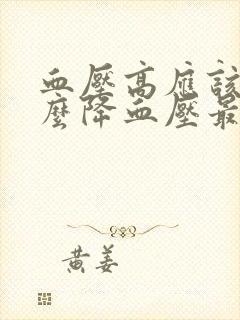 血壓高應該
麼降血壓最
黃姜